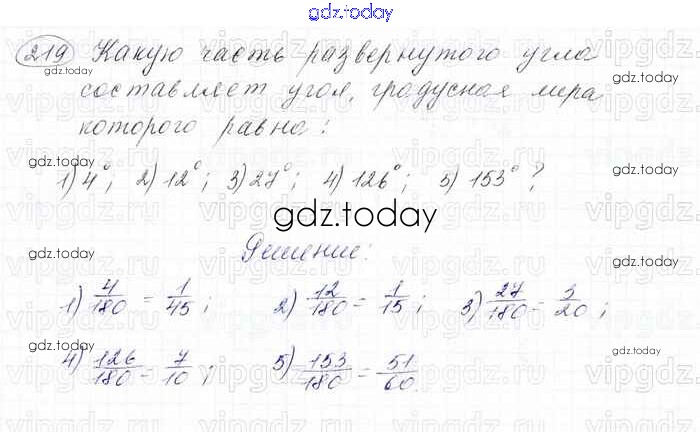 gdz.today
219 Какую часть развернутого угла
gdz.today
составляет угол, градусная мера
gdz.today
которого равна:
gdz.today
gdz.today
1) 4°; 2) 12°; 3) 27°; 4) 126°; 5) 153°?
gdz.today
Решение:
gdz.today
gdz.today
1) 4/180 = 1/45; 2) 12/180 = 1/15; 3) 27/180 = 3/20;
gdz.today
4) 126/180 = 7/10; 5) 153/180 = 51/60.
gdz.today